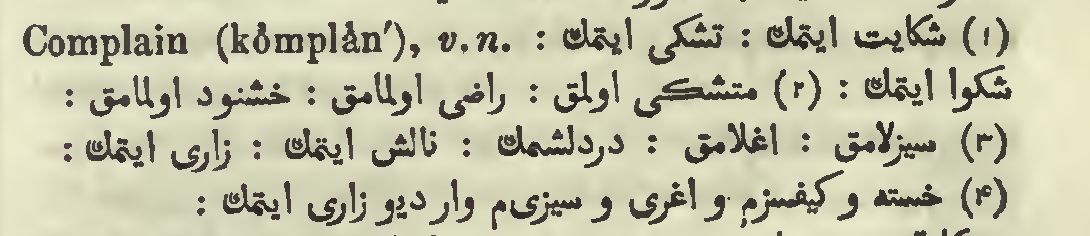 Complain (kŏmplån′), v.n. : (١) شكايت ايتمك : تشكى ايتمك
شكوا ايتمك : (٢) متشكى اولمق : راضى اولمامق : خشنود اولمامق :
(٣) سيزلامق : اغلامق : دردلشمك : نالش ايتمك : زارى ايتمك :
(۴) خسته و كيفسزم و اغرى و سيزىم وار ديو زارى ايتمك :